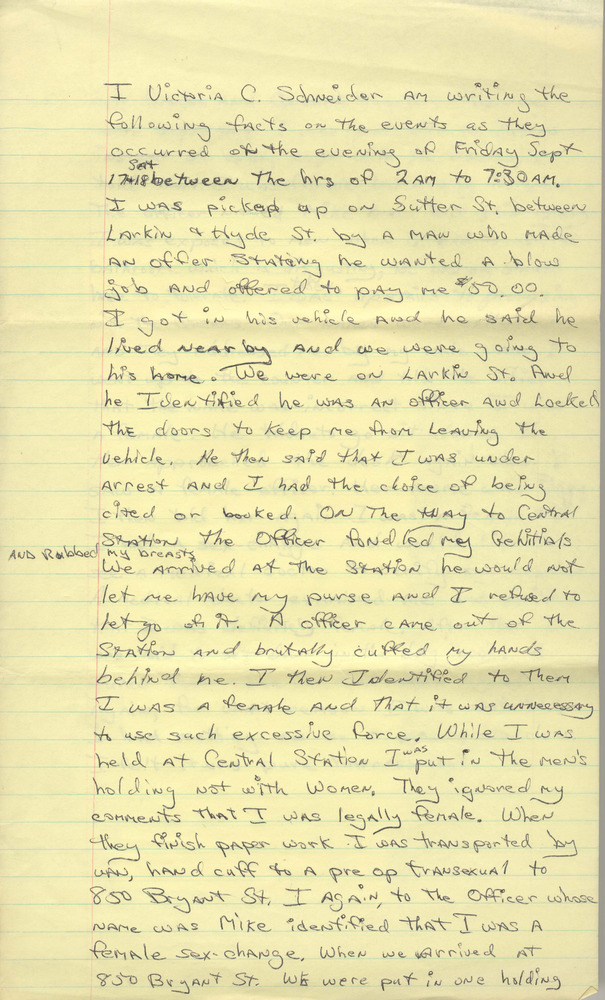 I Victoria C. Schneider am writing the
following facts on the events as they
occurred on the evening of Friday Sept
Sat
17th-18 between the hrs of 2 AM to 7:30 AM.
I was picked up on Sutter St. between
Larkin & Hyde St. by a man who made
an offer stateing he wanted a blow
job and offered to pay me $50.00.
I got in his vehicle and he said he
lived near by and we were going to
his home. We were on Larkin St. And
he Identified he was an officer and Locked
the doors to keep me from Leaving the
vehicle. He then said that I was under
arrest and I had the choice of being
cited or booked. On The way to Central
Station the Officer fondled my Genitials
and Rubbed my breasts
We arrived at the Station he would not
let me have my purse and I refused to
let go of it. A officer came out of the
Station and brutally cuffed my hands
behind me. I then Identified to Them
I was a female and that it was unnecessary
to use such excessive force. While I was
held at Central Station I was put in the men's
holding not with women. They ignored my
comments that I was legally female. When
they finish paper work I was transported by
van, hand cuff to a pre op transexual to
850 Bryant St. I Again, to the Officer whose
name was Mike identified that I was a
female sex-change. When we arrived at
850 Bryant St. We were put in one holding